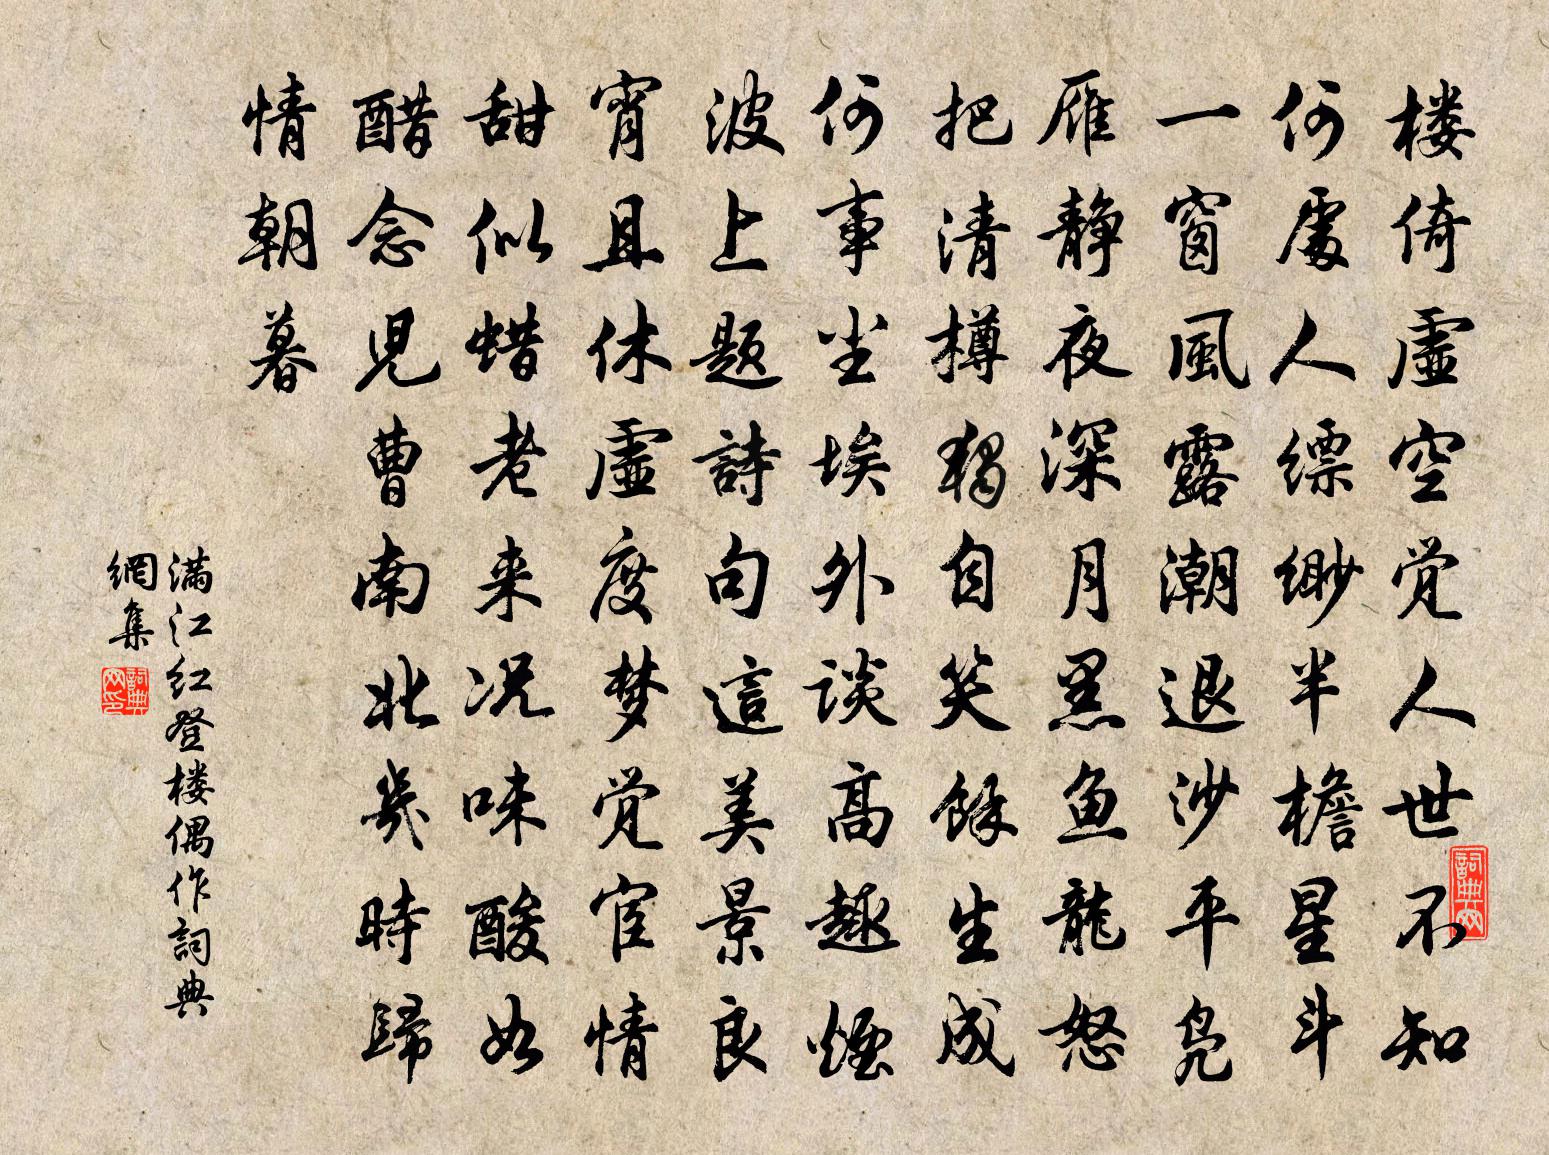 楼倚虛空觉人世不知
何處人缥缈半檐星斗
一窗風露潮退沙平凫
雁静夜深月黑鱼龍怒
把清樽独自笑餘生成
何事尘埃外谈高趣煙
波上题詩句這美景良
宵且休虛度梦觉宦情
甜似蜡老来况味酸如
醋念児曹南北幾時歸
情朝暮
满江红登楼偶作詞典
網集
詞典网
詞典网印